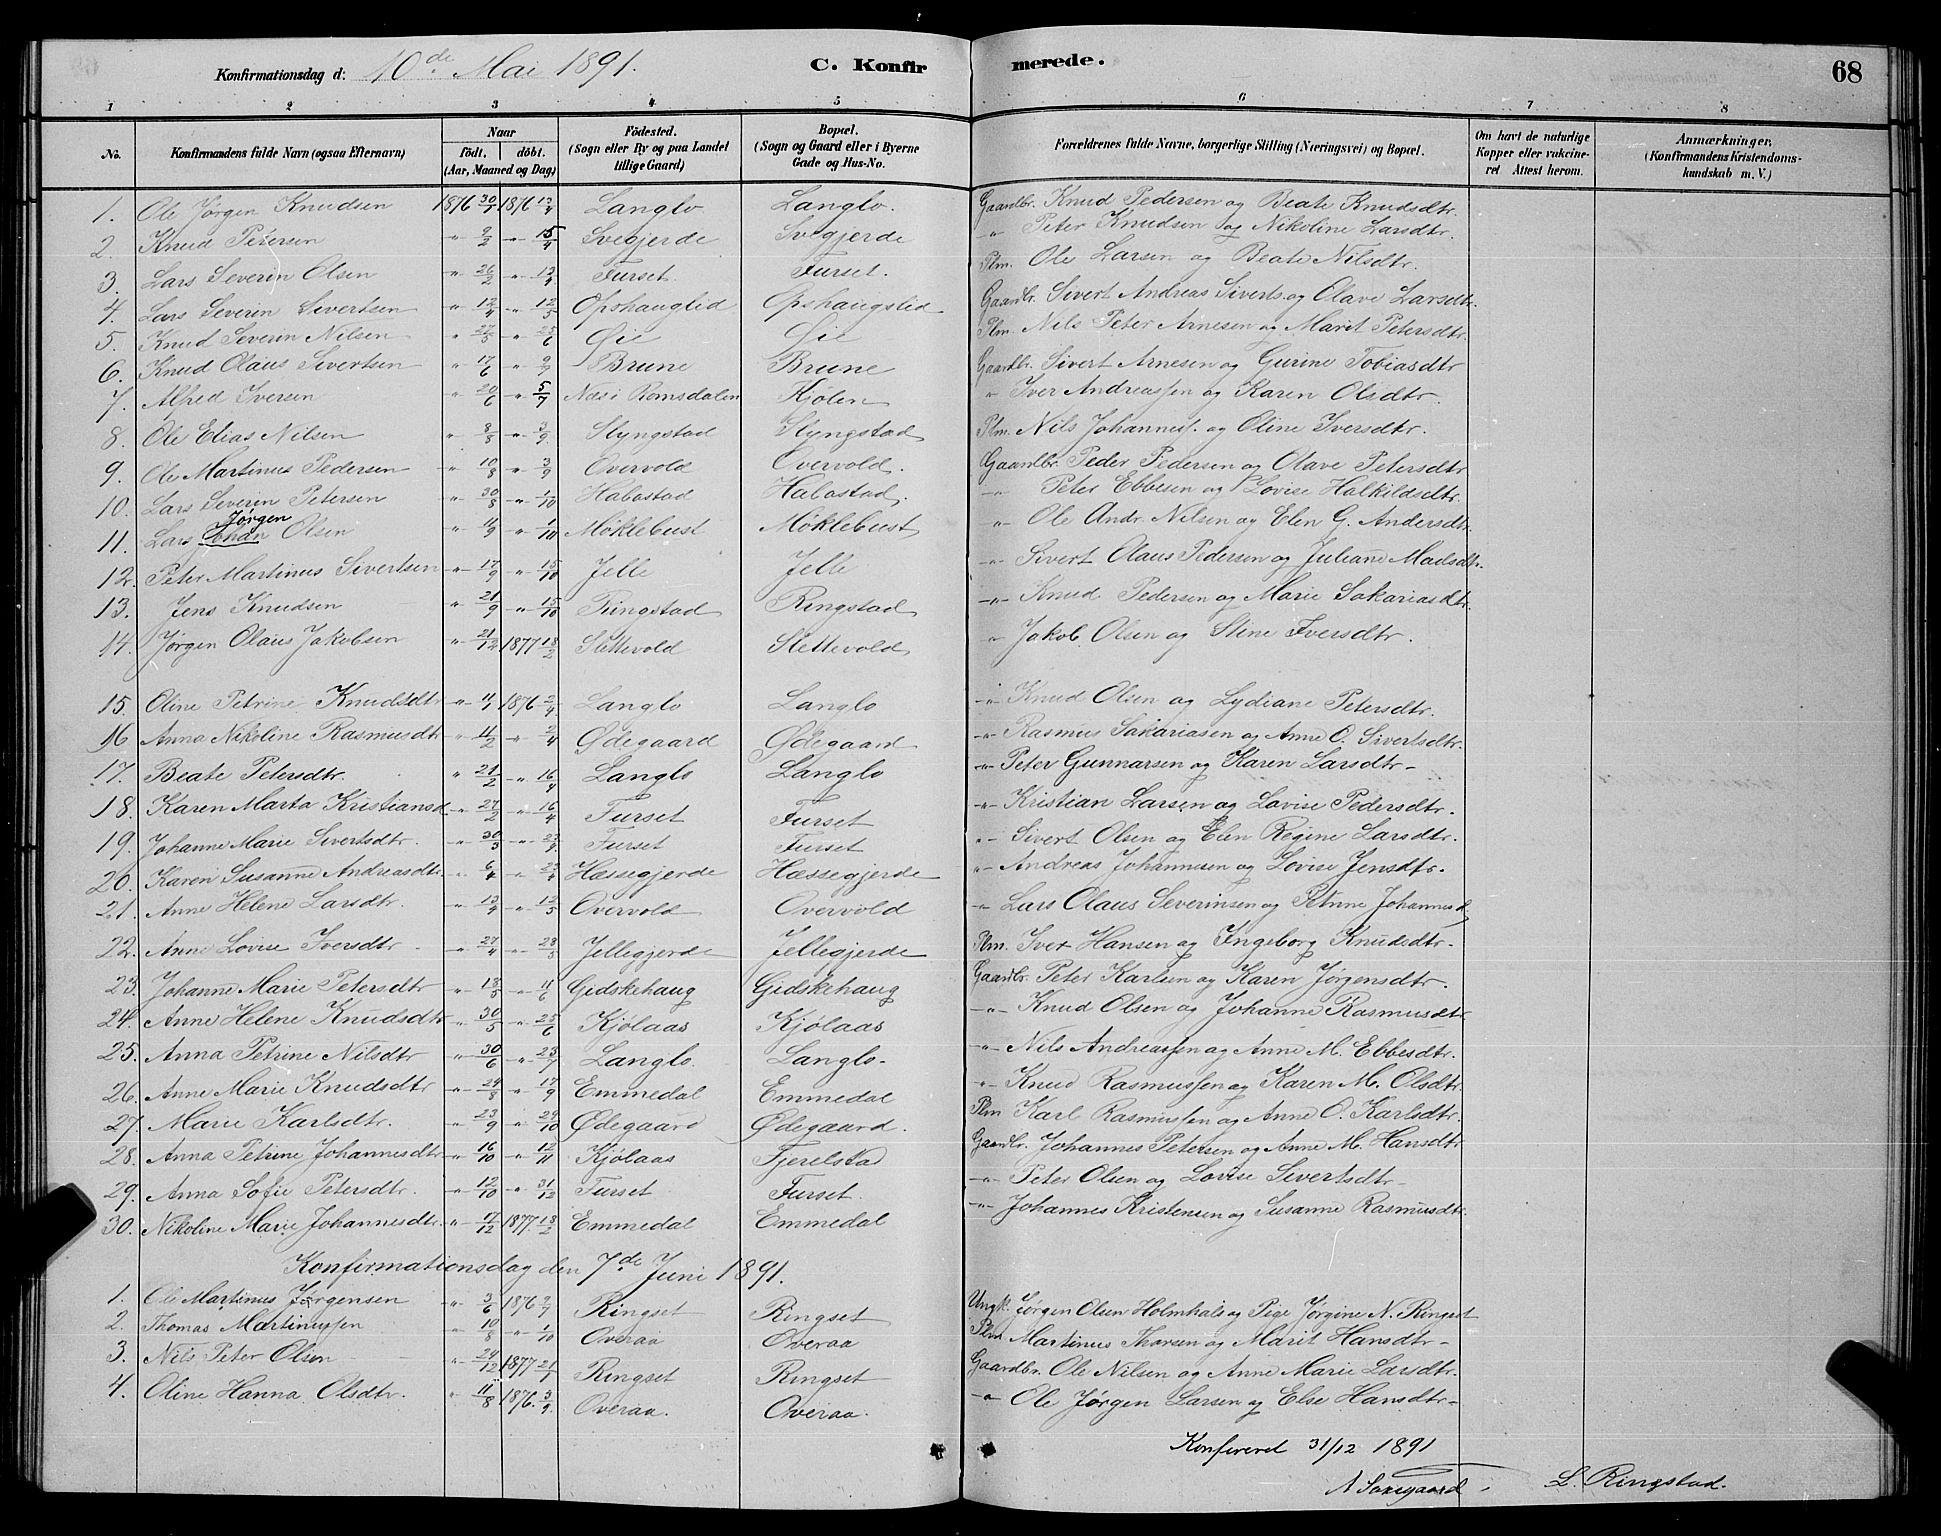 Konfirmationsdag d: 10de Mai 1891. C. Konfirmerede. 68
1 2 3 4 5 6 7 8
No. Konfirmandens fulde Navn (ogsaa Efternavn) Naar födt. döbt. (Aar, Maaned og Dag) Födested. (Sogn eller By og paa Landet tillige Gaard) Bopæl. (Sogn og Gaard eller i Byerne Gade og Hus-No. Forældrenes fulde Navne, borgerlige Stilling (Næringsvei) og Bopæl. Om havt de naturlige Kopper eller vakcineret Attest herom. Anmærkninger, (Konfirmandens Kristendomskundskab m. V.)
1. Ole Jørgen Knudsen 1876 30/1 1876 17/4 Langlo Langlo. Gaardbr. Knud Pedersen og Beate Knudsdtr.
2. Knud Petersen " 9/2 " 15/4 Svegjerde Svegjerde " Peter Knudsen og Nikoline Larsdtr.
3. Lars Severin Olsen " 26/2 " 17/4 Furset. Furset. Plm. Ole Larsen og Beate Nilsdtr.
4. Lars Severin Sivertsen " 12/4 " 12/5 Opshauglid Opshaugslid Gaardbr. Sivert Andreas Siverts. og Olave Larsdtr.
5. Knud Severin Nilsen " 27/5 " 25/6 Øie Øie Plm. Nils Peter Arnesen og Marit Petersdtr.
6. Knud Olaus Sivertsen " 17/6 " 9/7 Brune Brune Gaardbr. Sivert Arnesen og Gurine Tobiasdtr
7. Alfred Iversen " 20/6 " 5/7 Næs i Romsdalen Kjölen " Iver Andreassen og Karen Olsdtr.
8. Ole Elias Nilsen " 8/8 " 3/9 Slyngstad Slyngstad Plm. Nils Johannes. og Oline Iversdtr.
9. Ole Martinus Pedersen " 10/8 " 3/9 Overvold Overvold. Gaardbr. Peder Pedersen og Olave Petersdtr
10. Lars Severin Petersen " 30/8 " 1/10 Habostad Habostad. " Peter Ebbesen og Lovise Halkildsdtr.
11. Lars Johan Jørgen Olsen " 16/9 " 1/10 Møklebust Møklebust " Ole Andr. Nilsen og Elen G. Andersdtr.
12. Peter Martinus Sivertsen " 17/9 " 15/10 Jelle Jelle " Sivert Olaus Pedersen og Juliane Madsdtr.
13. Jens Knudsen " 21/9 " 15/10 Ringstad Ringstad " Knud Pedersen og Marie Sakariasdtr.
14. Jørgen Olaus Jakobsen " 21/12 1877 18/2 Slettevold Slettevold " Jakob Olsen og Stine Iversdtr.
15. Oline Petrine Knudsdtr " 11/1 1876 2/4 Langlo Langlo " Knud Olsen og Lydiane Petersdtr.
16 Anna Nikoline Rasmusdtr " 11/2 " 2/4 Ødegaard Ødegaard " Rasmus Sakariasen og Anne O. Sivertsdtr.
17. Beate Petersdtr. " 21/2 " 16/4 Langlo Langlo " Peter Gunnarsen og Karen Larsdtr -
18. Karen Marta Kristiansd. " 27/2 " 16/4 Furset Furset " Kristian Larsen og Lovise Pedersdtr.
19. Johanne Marie Sivertsdtr. " 30/3 " 23/4 Furset Furset " Sivert Olsen og Elen Regine Larsdtr.
20. Karen Susanne Andreasdtr. " 6/4 " 23/4 Hæssegjerde Hæssegjerde " Andreas Johannesen og Lovise Jensdtr.
21. Anne Helene Larsdtr. " 13/4 " 12/5 Overvold Overvold " Lars Olaus Severinsen og Petrine Johannesd
22. Anne Lovise Iversdtr " 27/4 " 28/5 Jellegjerde Jellegjerde Plm. Iver Hansen og Ingeborg Knudsdtr-
23. Johanne Marie Petersdtr " 13/5 " 11/6 Gidskehaug Gidskehaug Gaardbr. Peter Karlsen og Karen Jørgensdtr.
24. Anne Helene Knudsdtr " 30/5 " 25/6 Kjölaas Kjölaas " Knud Olsen og Johanne Rasmusdtr
25. Anna Petrine Nilsdtr " 30/6 " 23/7 Langlo. Langlo- " Nils Andreassen og Anne M. Ebbesdtr.
26. Anne Marie Knudsdtr " 24/8 " 17/9 Emmedal Emmedal " Knud Rasmussen og Karen M. Olsdtr.
27. Marie Karlsdtr. " 23/9 " 29/10 Ødegaard Ødegaard. Plm Karl Rasmussen og Anne O. Karlsdtr.
28. Anna Petrine Johannesdtr " 16/10 " 12/11 Kjölaas Fjerelstad Gaardbr. Johannes Petersen og Anne M. Hansdtr
29. Anna Sofie Petersdtr. " 12/10 " 31/12 Furset Furset. " Peter Olsen og Lovise Sivertsdtr-
30. Nikoline Marie Johannesdtr. " 17/12 1877 18/2 Emmedal Emmedal " Johannes Kristensen og Susanne Rasmusdtr.
Konfirmationsdag den 7de Juni 1891.
1. Ole Martinus Jørgensen " 3/6 1876 2/7 Ringset Ringset Ungk. Jørgen Olsen Holmhals og Pige Jørgine N. Ringset
2. Thomas Martinussen " 10/8 " 1/10 Overaa Overaa Plm Martinus Thorsen og Marit Hansdtr-
3. Nils Peter Olsen " 24/12 1877 21/1 Ringset Ringset Gaardbr. Ole Nilsen og Anne Marie Larsdtr.
4. Oline Hanna Olsdtr. " 11/8 1876. 3/9. Overaa. Overaa. " Ole Jørgen Larsen og Else Hansdtr-
Konfereret 31/12 1891
L. Ringstad.